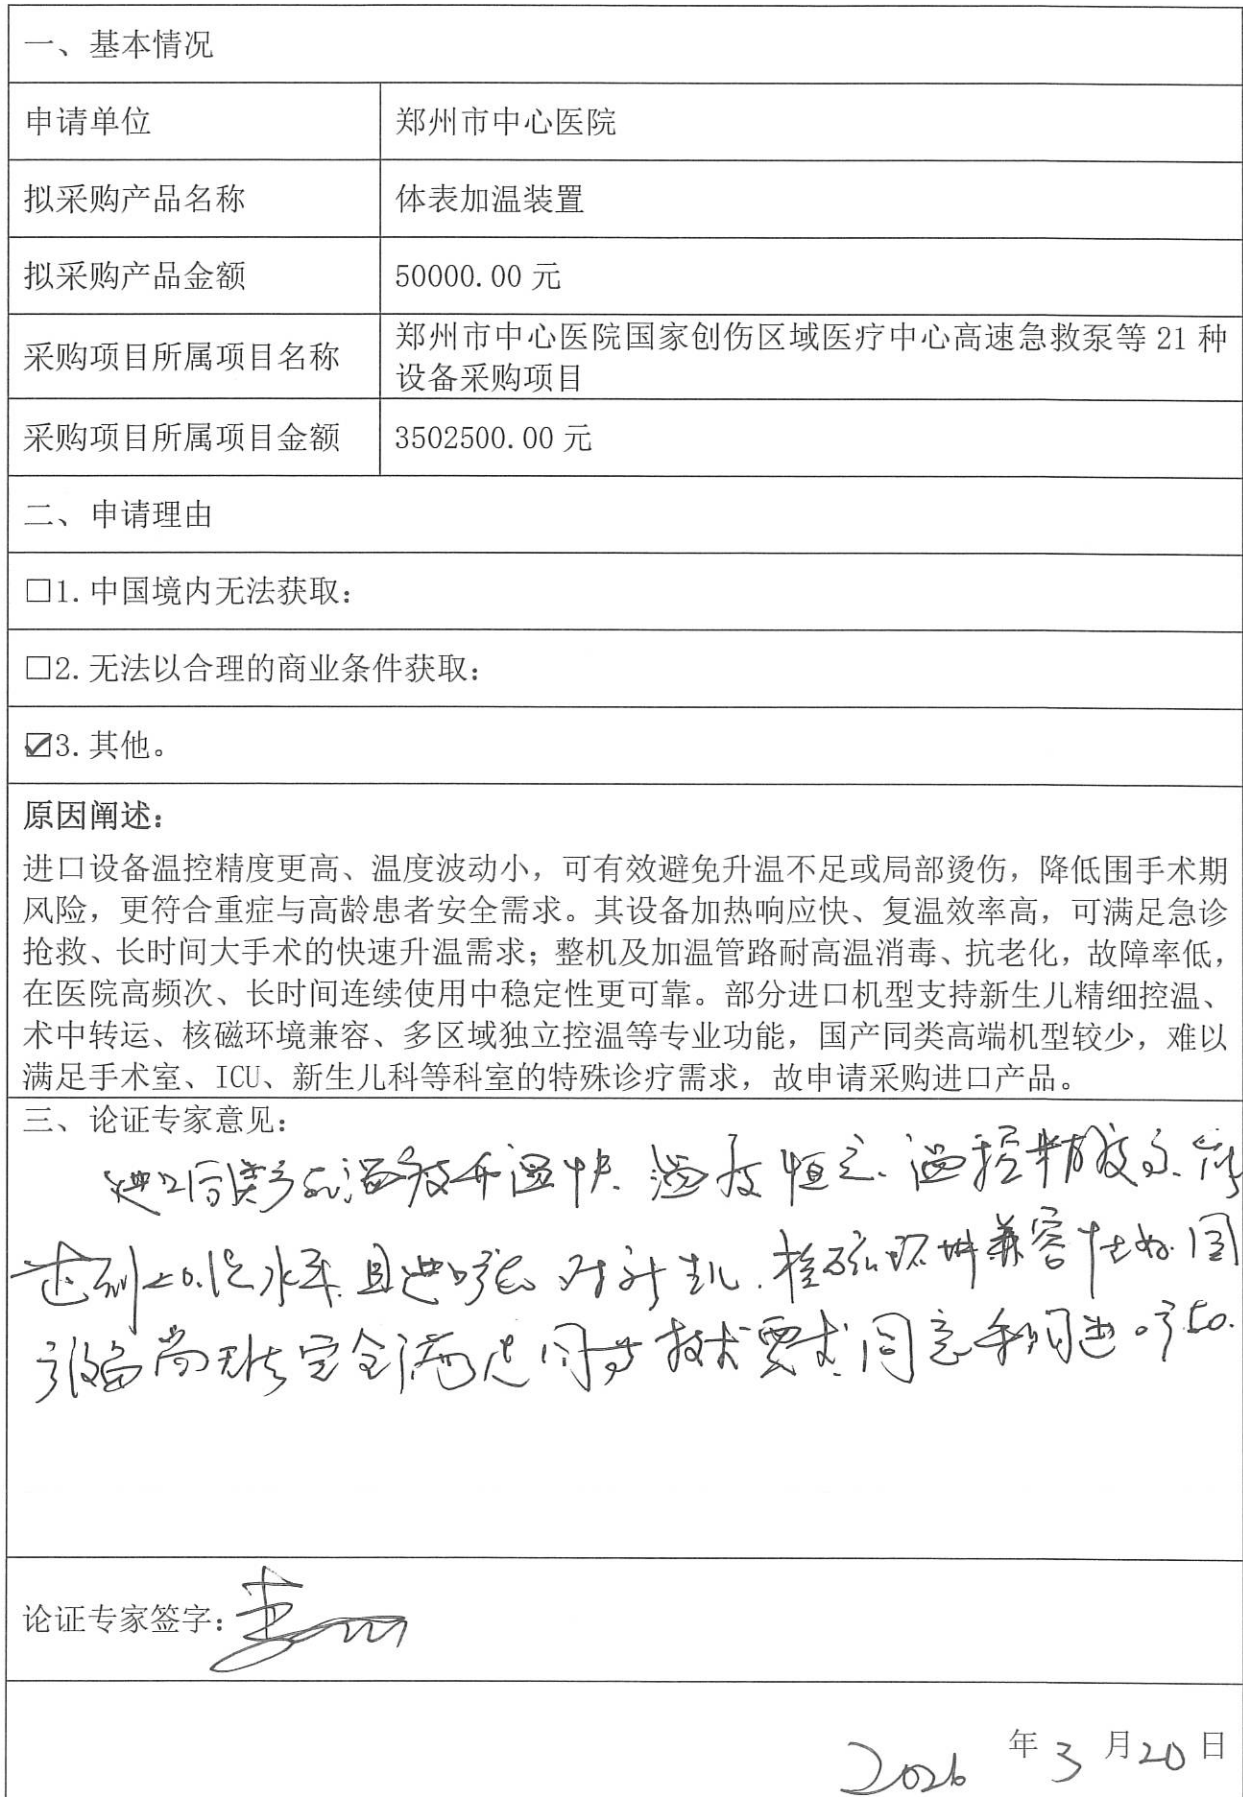 一、基本情况
申请单位 郑州市中心医院
拟采购产品名称 体表加温装置
拟采购产品金额 50000.00 元
采购项目所属项目名称 郑州市中心医院国家创伤区域医疗中心高速急救泵等 21 种
设备采购项目
采购项目所属项目金额 3502500.00 元
二、申请理由
☐1.中国境内无法获取：
☐2.无法以合理的商业条件获取：
☑3.其他。
原因阐述：
进口设备温控精度更高、温度波动小，可有效避免升温不足或局部烫伤，降低围手术期
风险，更符合重症与高龄患者安全需求。其设备加热响应快、复温效率高，可满足急诊
抢救、长时间大手术的快速升温需求；整机及加温管路耐高温消毒、抗老化，故障率低，
在医院高频次、长时间连续使用中稳定性更可靠。部分进口机型支持新生儿精细控温、
术中转运、核磁环境兼容、多区域独立控温等专业功能，国产同类高端机型较少，难以
满足手术室、ICU、新生儿科等科室的特殊诊疗需求，故申请采购进口产品。
三、论证专家意见：
进口同类产品温度升温快、温度恒定、温控精度高、能
达到±0.1℃水平、且进口产品对新生儿、核磁环境兼容性好、国
产设备尚无法完全满足同等技术要求、同意采购进口产品.
论证专家签字：
2026 年 3 月 20 日